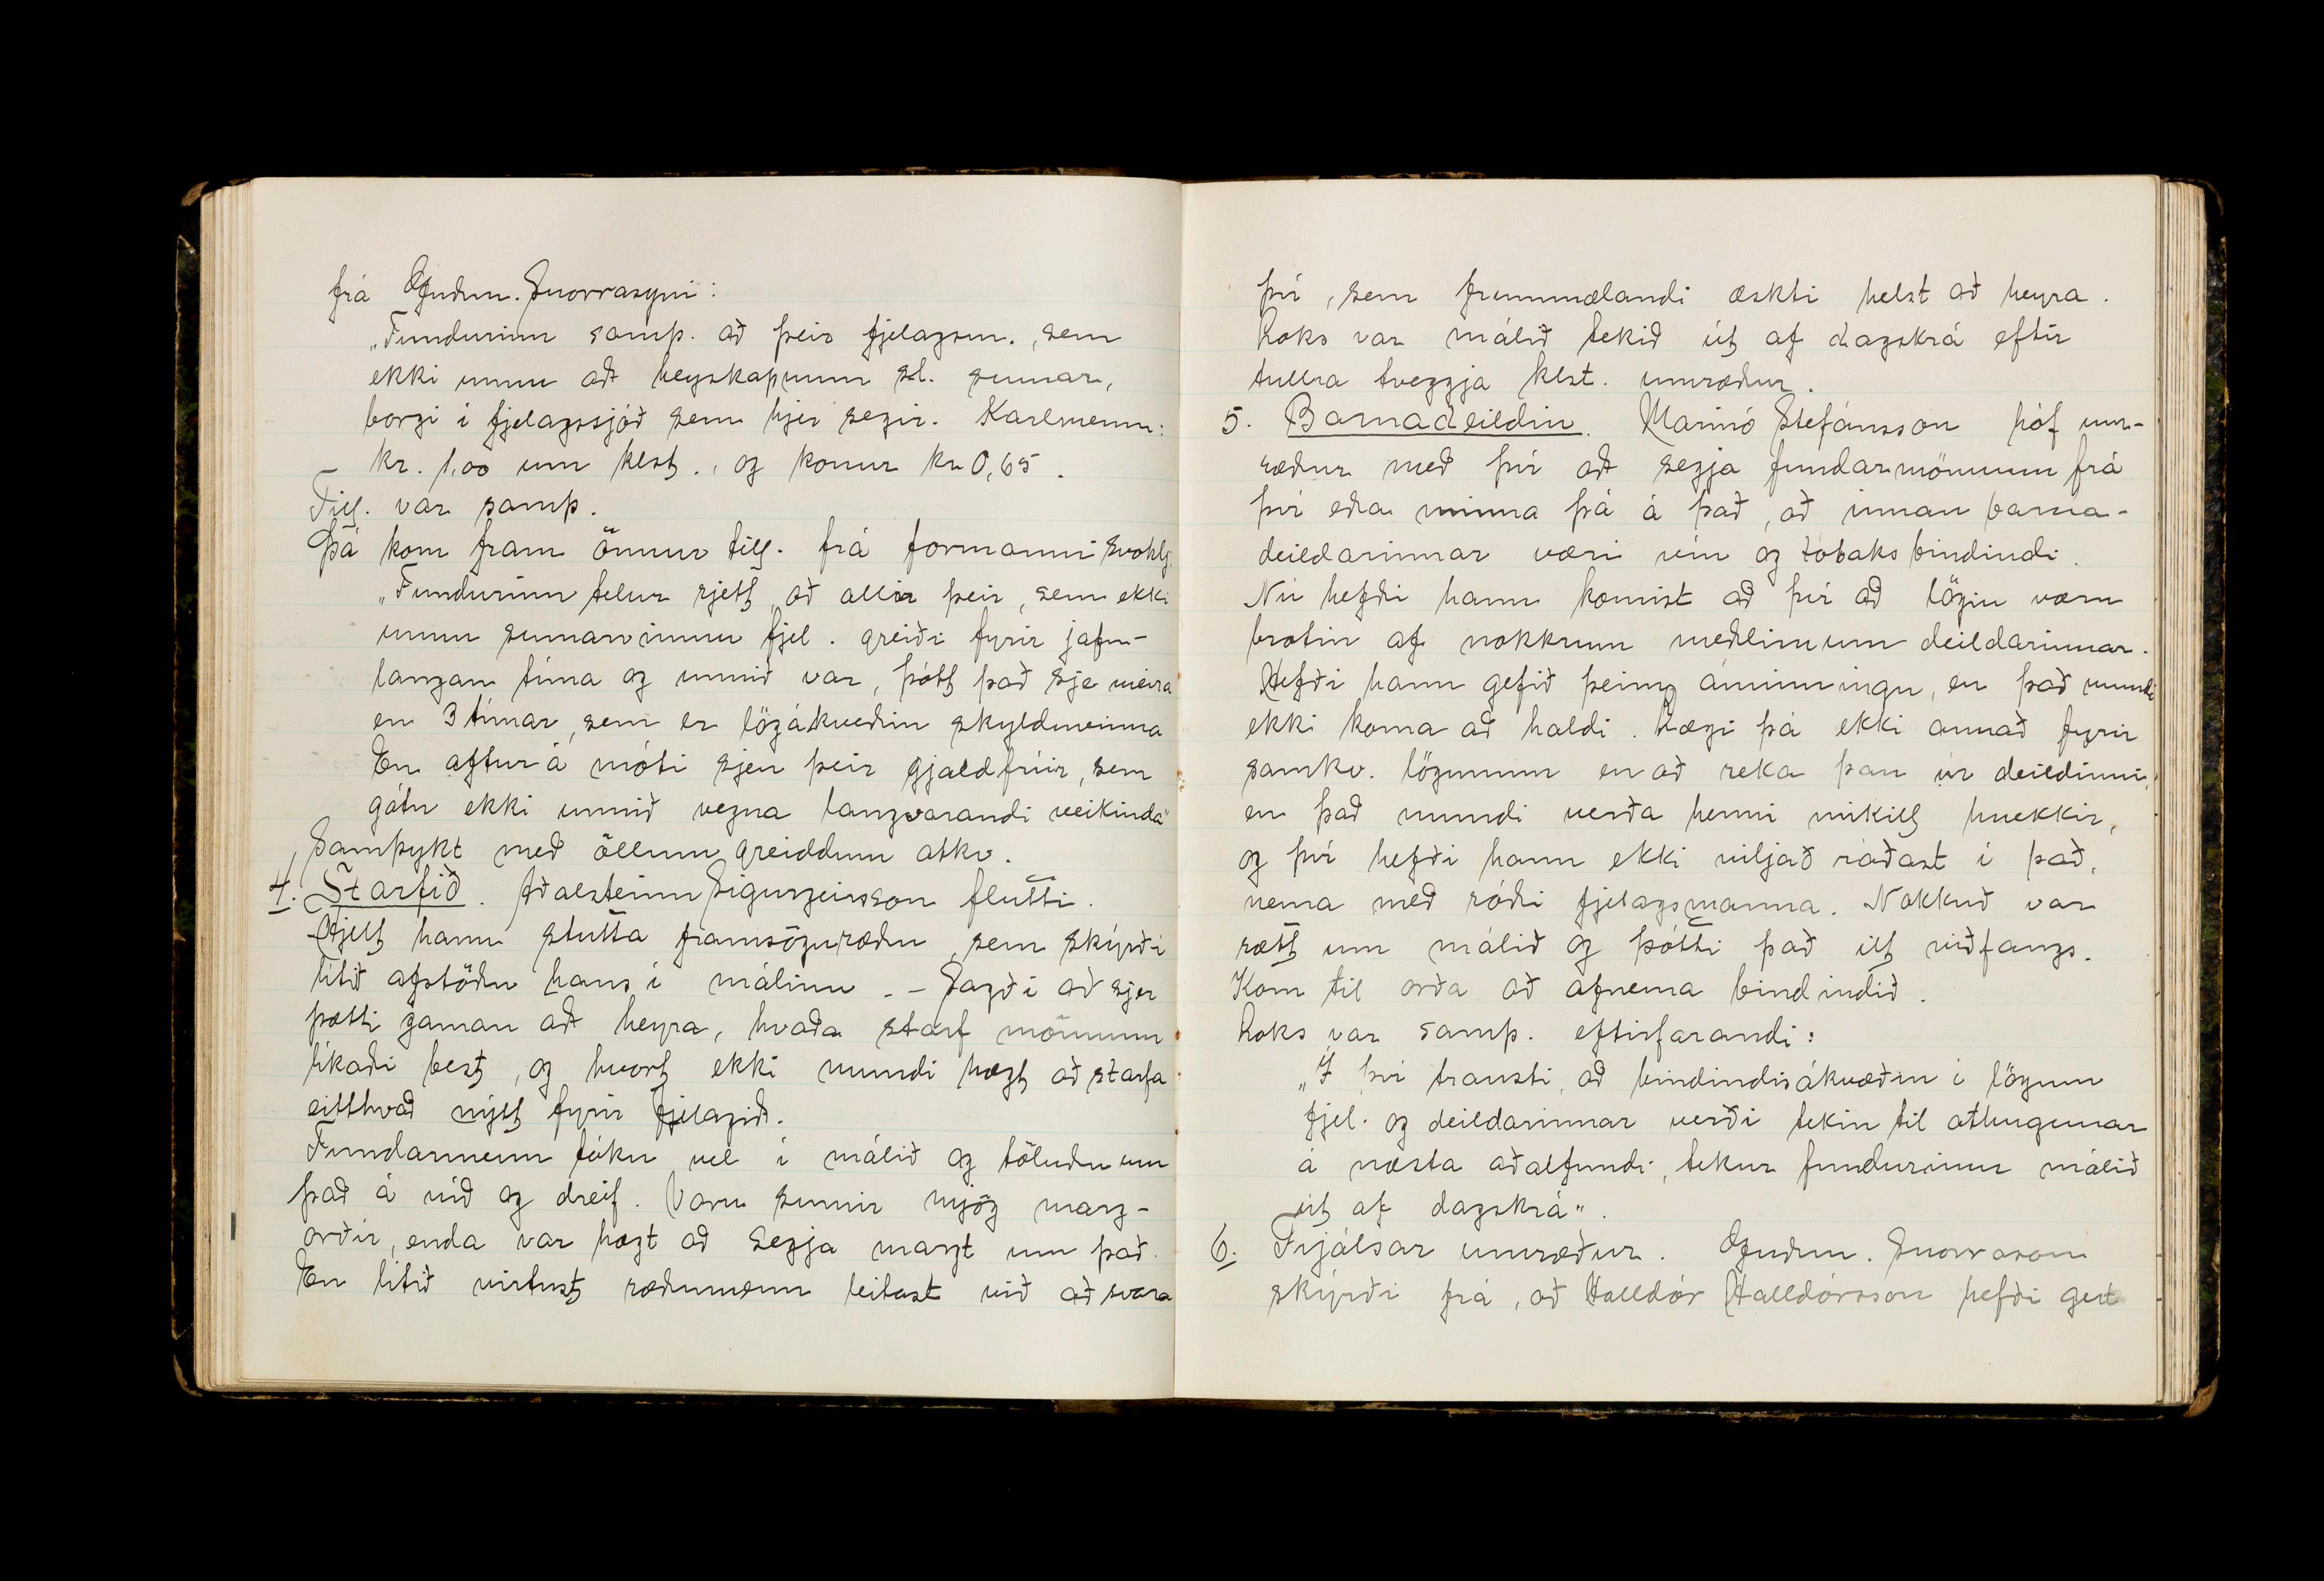 frá Guðm. Snorrasyni:
„Fundurinn samþ. að þeir fjelagsm., sem
ekki unnu að heyskapnum sl. sumar,
borgi í fjelagssjóð sem hjer segir. Karlmenn:
kr. 1,00 um klst., og konur kr 0,65.
Till. var samþ.
Þá kom fram önnur till. frá formanni svohlj.
„Fundurinn telur rjett, að allir þeir, sem ekki
unnu sumarvinnu fjel. greiði fyrir jafn-
langan tíma og unnið var, þótt það sje meira
en 3 tímar, sem er lögákveðin skylduvinna
En aftur á móti sjeu þeir gjaldfríir, sem
gátu ekki unnið vegna langvarandi veikinda"
Samþykt með öllum greiddum atkv.
4. Starfið. Aðalsteinn Sigurgeirsson flutti.
Hjelt hann stutta framsöguræðu, sem skýrði
lítið afstöðu hans í málinu. – Sagði að sjer
þætti gaman að heyra, hvaða starf mönnum
líkaði best, og hvort ekki mundi hægt að starfa
eitthvað nýtt fyrir fjelagið.
Fundarmenn tóku vel í málið og töluðu um
það á víð og dreif. Voru sumir mjög marg-
orðir, enda var hægt að segja margt um það.
En lítið virtust ræðumenn leitast við að svara
því, sem frummælandi æskti helst að heyra.
Loks var málið tekið út af dagskrá eftir
tullra tveggja klst. umræður.
5. Barnadeildin. Marinó Stefánsson hóf um-
ræður með því að segja fundarmönnum frá
því eða minna þá á það, að innan barna-
deildarinnar væri vín og tóbaksbindindi.
Nú hefði hann komist að því að lögin væru
brotin af nokkrum meðlimum deildarinnar.
Hefði hann gefið þeim áminningu, en það mundi
ekki koma að haldi. Lægi þá ekki annað fyrir
samkv. lögunum en að reka þau úr deildinni,
en það mundi verða henni mikill hnekkir,
og því hefði hann ekki viljað ráðast í það,
nema með ráði fjelagsmanna. Nokkuð var
rætt um málið og þótti það illt viðfangs.
Kom til orða að afnema bindindið.
Loks var samþ. eftirfarandi:
„Í því trausti, að bindindisákvæðin í lögum
fjel. og deildarinnar verði tekin til athugunar
á næsta aðalfundi, tekur fundurinn málið
út af dagskrá".
6. Frjálsar umræður. Guðm. Snorrason
skýrði frá, að Halldór Halldórsson hefði gert